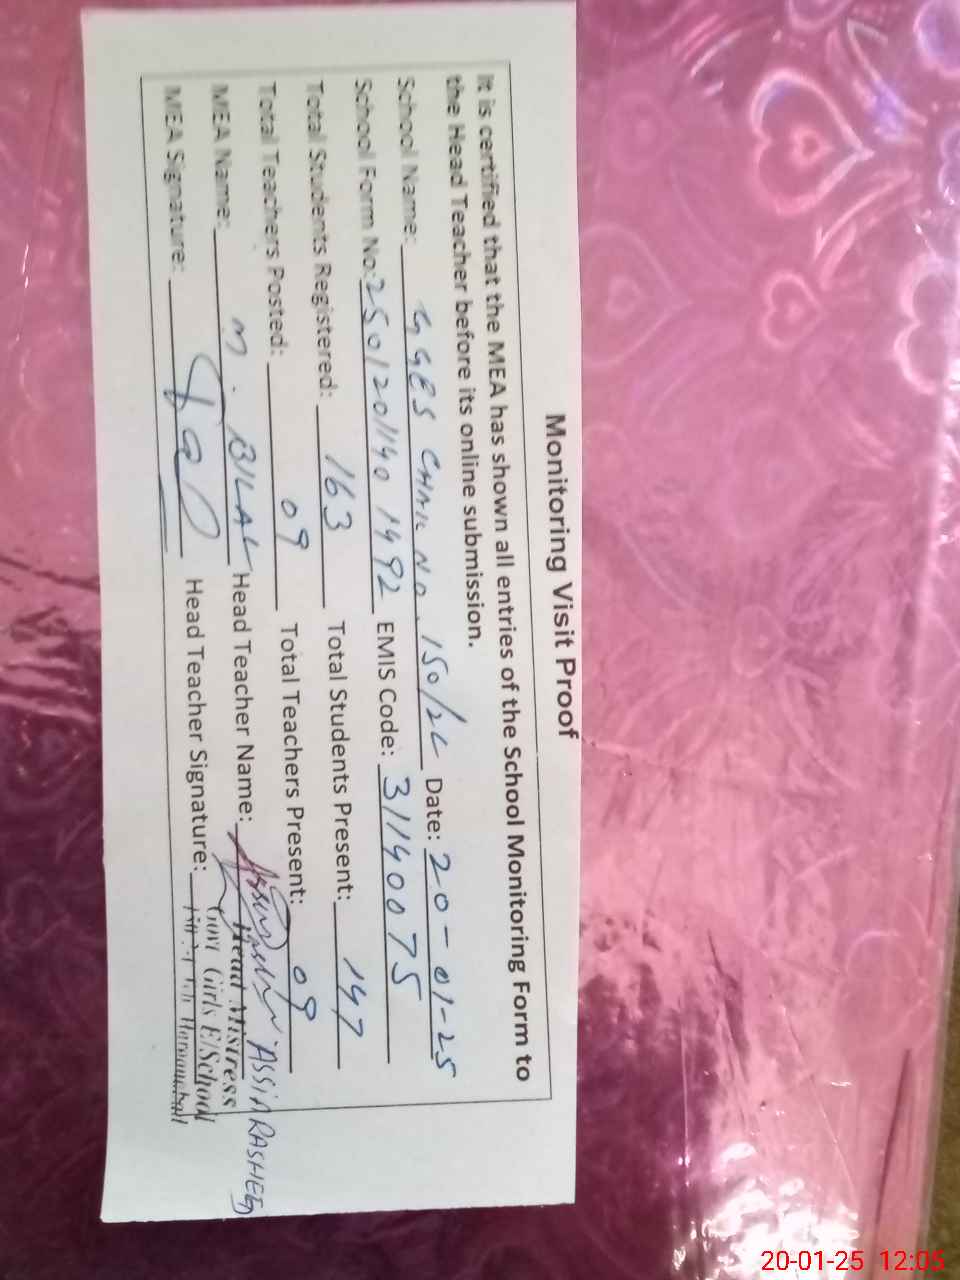 Monitoring Visit Proof
It is certified that the MEA has shown all entries of the School Monitoring Form to
the Head Teacher before its online submission.
School Name: GGES CHAK NO. 150/2L Date: 20-01-25
School Form No: 25012011401492 EMIS Code: 31140075
Total Students Registered: 163 Total Students Present: 147
Total Teachers Posted: 09 Total Teachers Present: 09
MEA Name: M. BILAL Head Teacher Name: RASHEED
MEA Signature: Head Teacher Signature:
Head Mistress
Govt Girls E/School
20-01-25 12:05